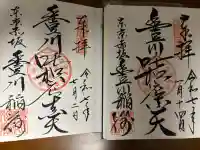 奉拝
令和七年
七月二日
豊川吒枳尼真天
東京赤坂
豊川稲荷
奉拝
令和七年
七月十四日
豊川吒枳尼真天
東京赤坂
豊川稲荷